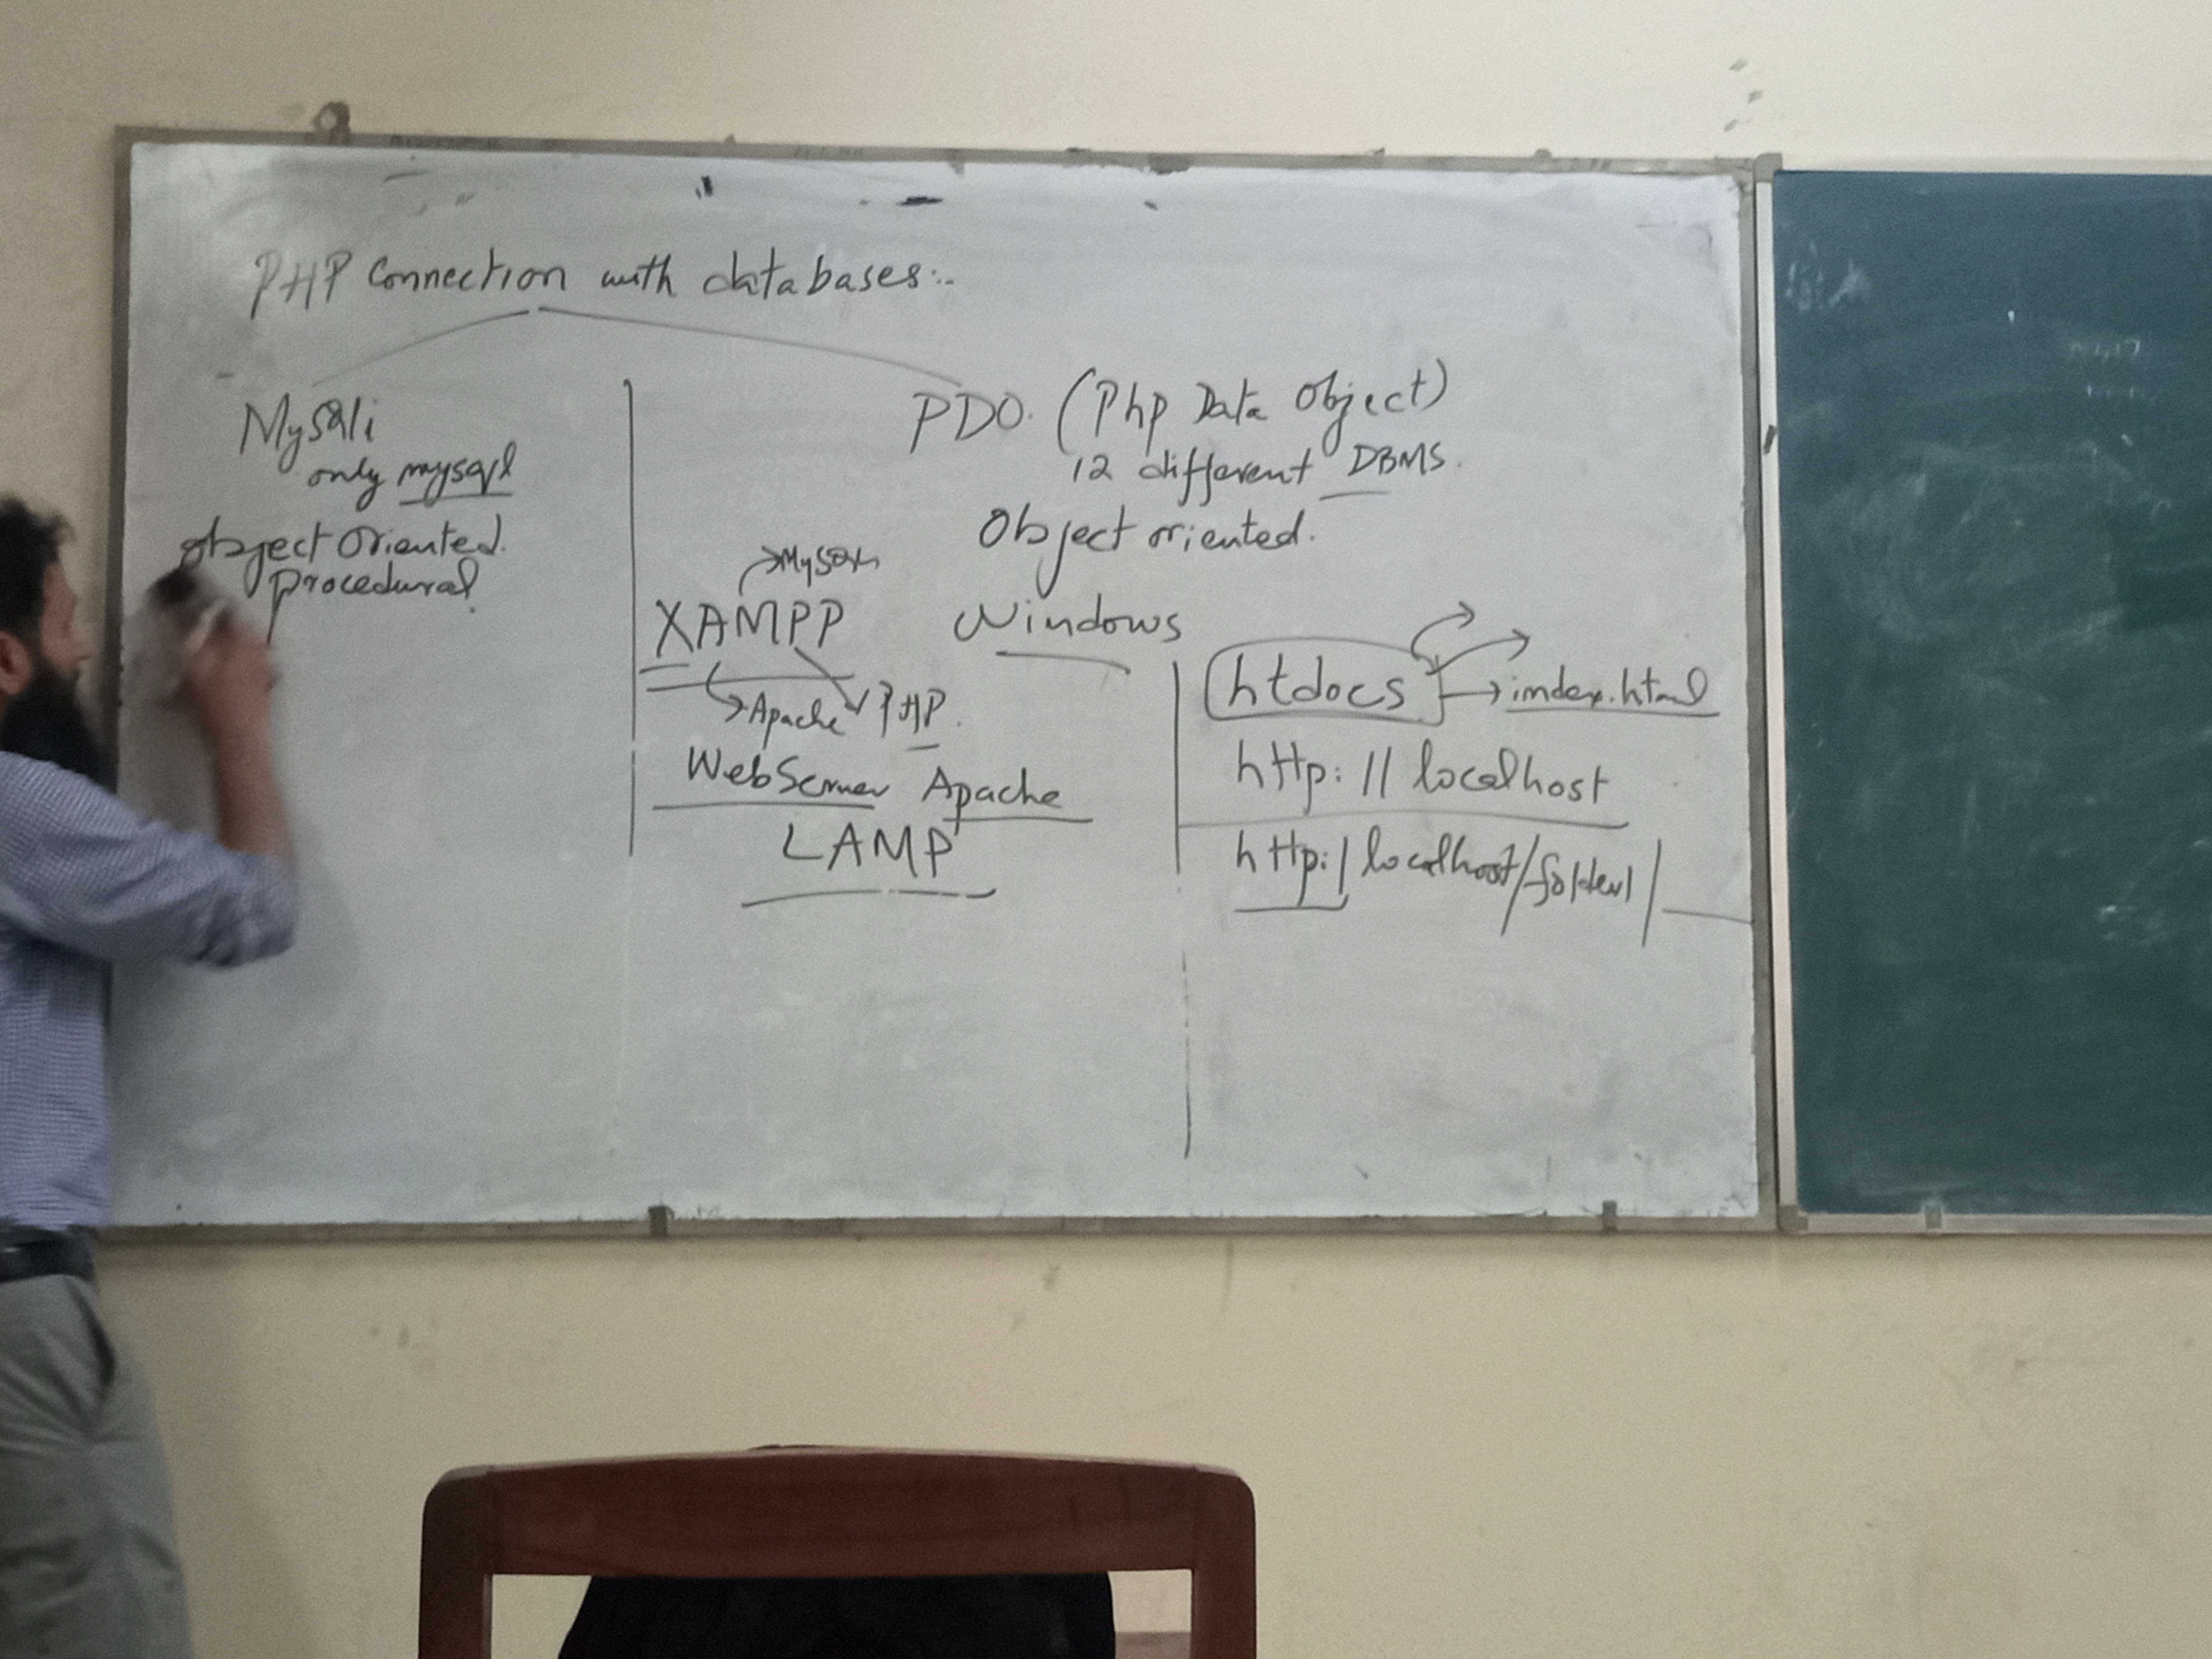 PHP Connection with databases:-
MySQli
only mysql
object oriented.
procedural
PDO. (Php Data Object)
12 different DBMS.
Object oriented.
MySQL
XAMPP Windows
Apache PHP.
WebServer Apache
LAMP
htdocs → index.html
http://localhost
http:/localhost/folder1/